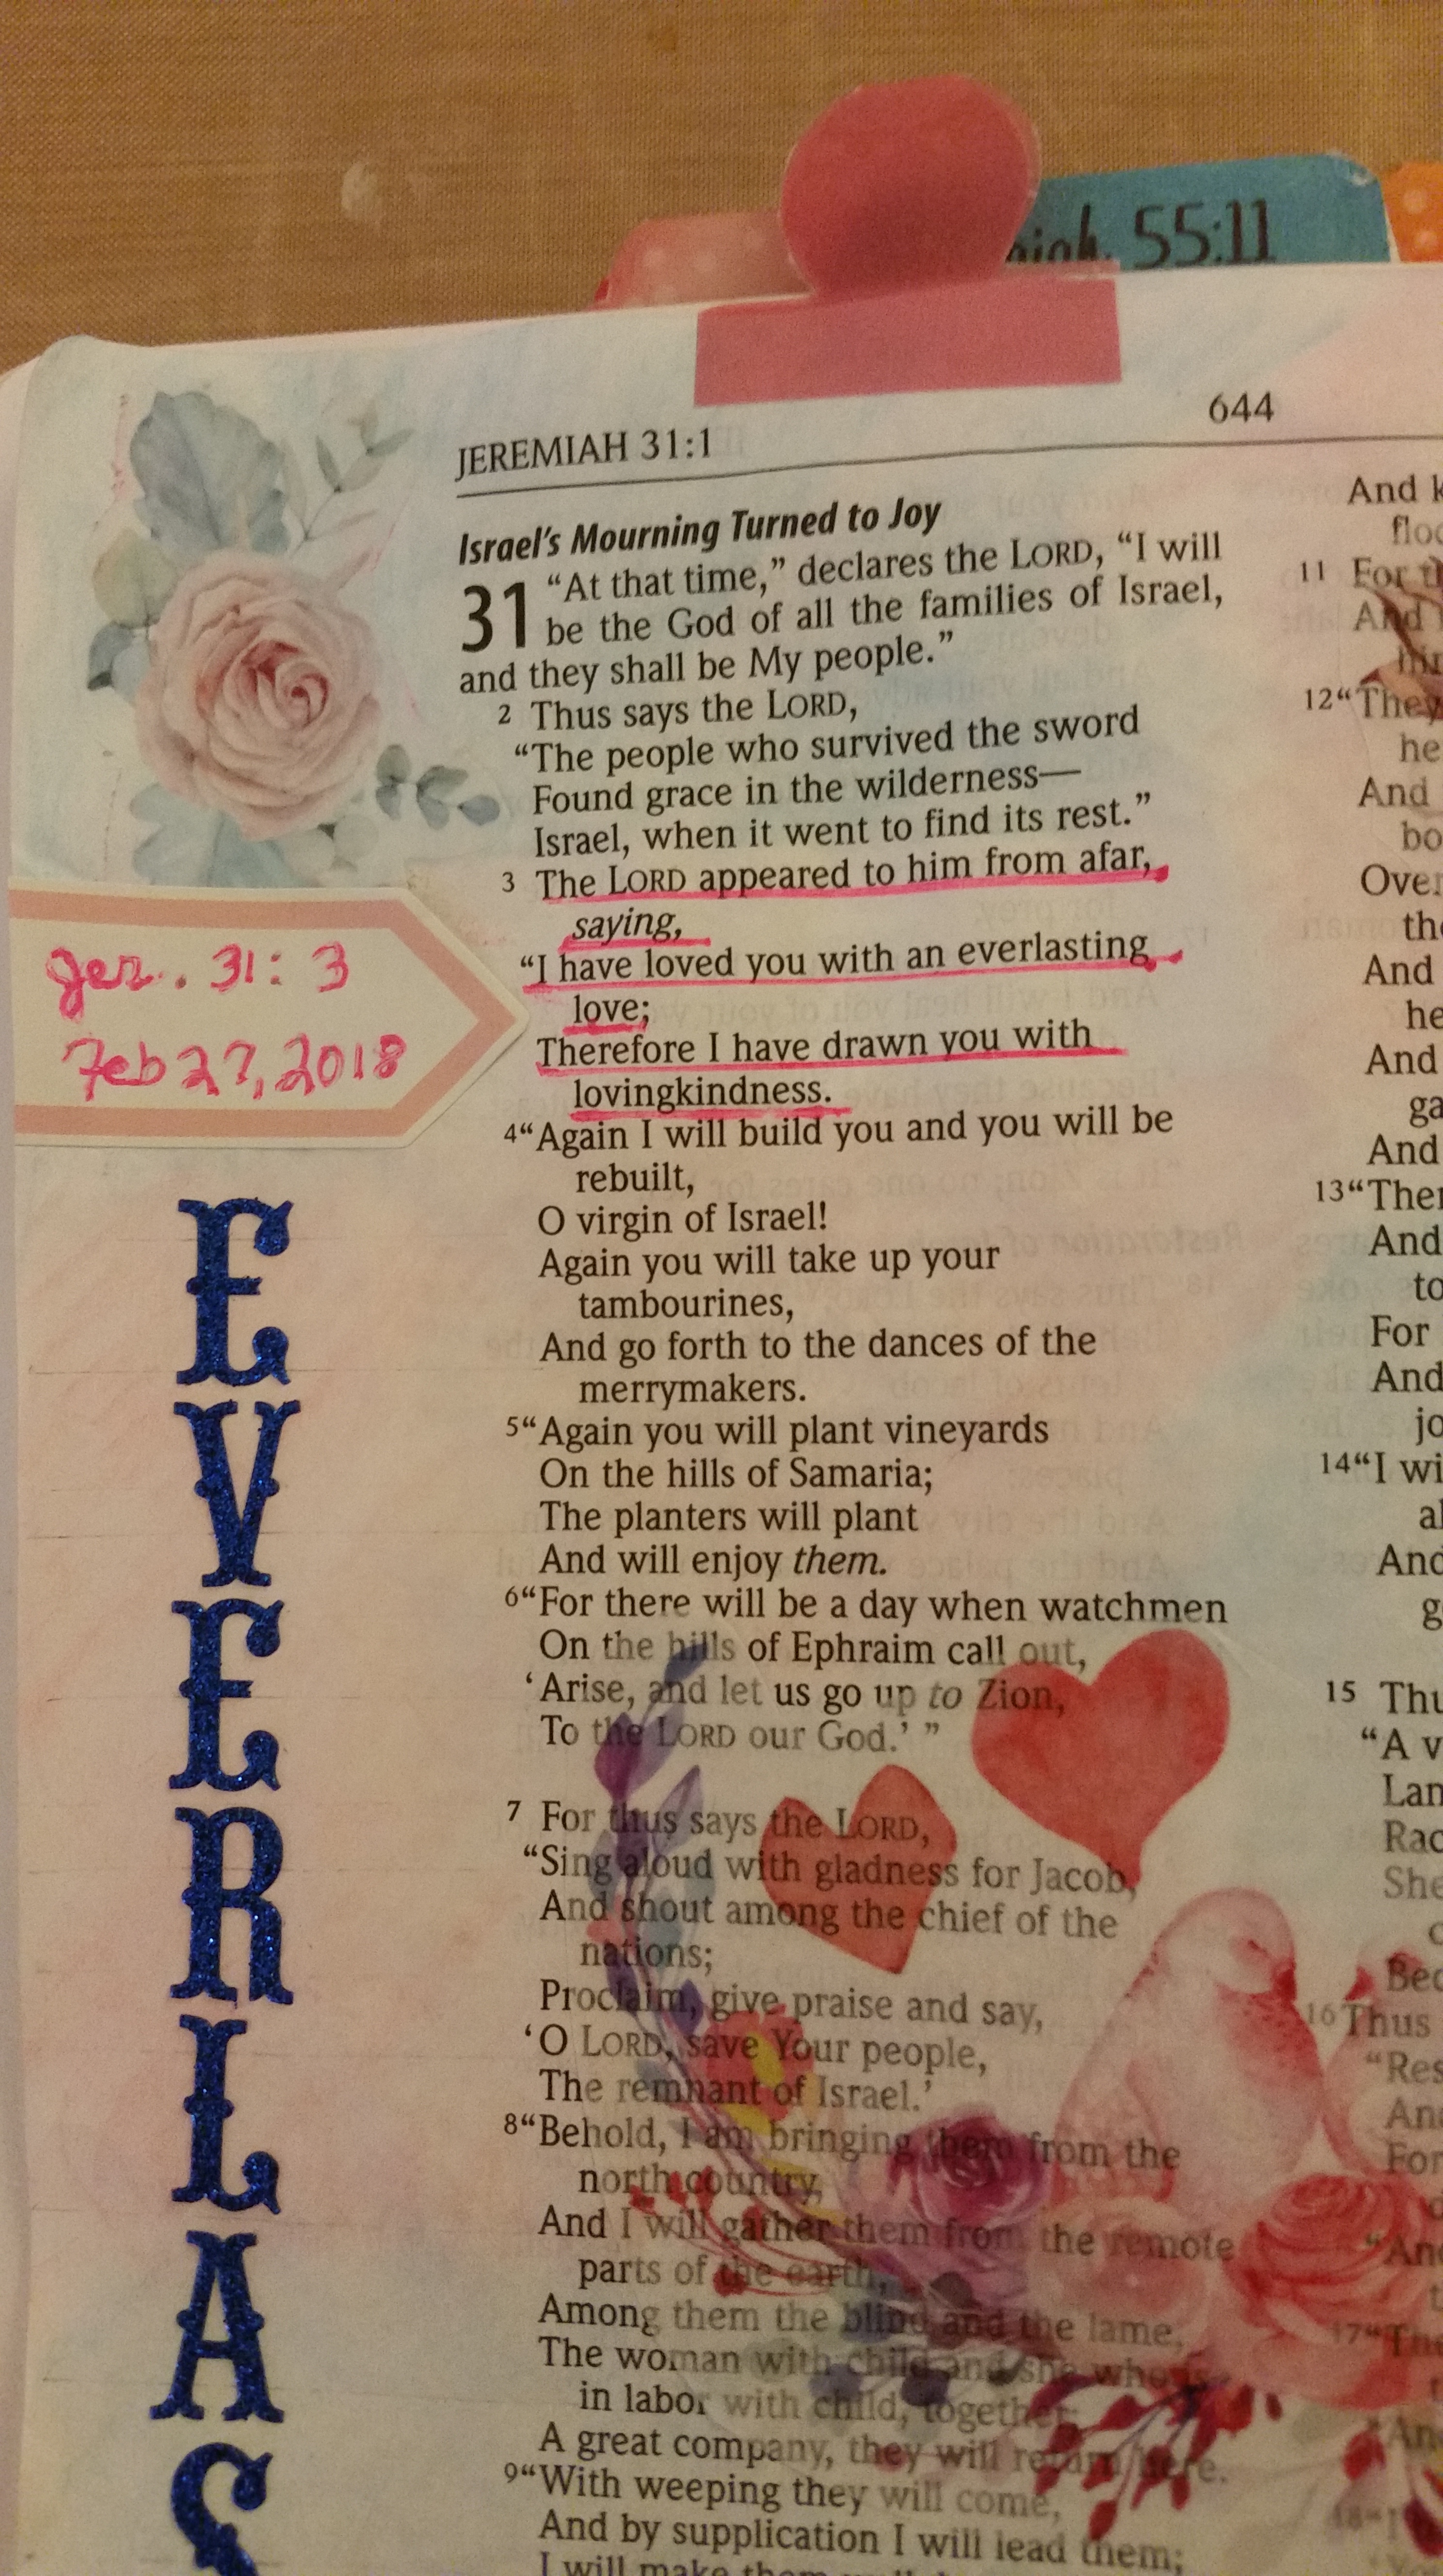 55:11
644
JEREMIAH 31:1
Israel's Mourning Turned to Joy
31 “At that time,” declares the LORD, “I will
be the God of all the families of Israel,
and they shall be My people.”
2 Thus says the LORD,
“The people who survived the sword
Found grace in the wilderness—
Israel, when it went to find its rest.”
3 The LORD appeared to him from afar,
saying,
“I have loved you with an everlasting
love;
Therefore I have drawn you with
lovingkindness.
4 “Again I will build you and you will be
rebuilt,
O virgin of Israel!
Again you will take up your
tambourines,
And go forth to the dances of the
merrymakers.
5 “Again you will plant vineyards
On the hills of Samaria;
The planters will plant
And will enjoy them.
6 “For there will be a day when watchmen
On the hills of Ephraim call out,
‘Arise, and let us go up to Zion,
To the LORD our God.’ ”
7 For thus says the LORD,
“Sing aloud with gladness for Jacob,
And shout among the chief of the
nations;
Proclaim, give praise and say,
‘O LORD, save Your people,
The remnant of Israel.’
8 “Behold, I am bringing them from the
north country,
And I will gather them from the remote
parts of the earth,
Among them the blind and the lame,
The woman with child and she who is
in labor with child, together;
A great company, they will return here.
9 “With weeping they will come,
And by supplication I will lead them;
I will make them
Jer. 31:3
Feb 27, 2018
EVERLAS
And
11 For
And
12 “They
he
And
bo
the
And
he
And
ga
And
13
And
to
For
And
jo
14 “I wi
al
And
g
15
“A
16 Thus